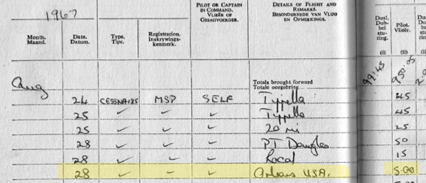 1967
PILOT OR CAPTAIN IN COMMAND.
VLIEËR OF GESAGVOERDER.
DETAILS OF FLIGHT AND REMARKS.
BESONDERHEDE VAN VLUG EN OPMERKINGS.
Month. Maand.
Date. Datum.
Type. Tipe.
Registration. Inskrywings-kenmerk.
Dual. Dub-bel stu-ring.
Pilot. Vlieër.
(1) (2)
Aug
Totals brought forward
Totale oorgedra
97:45
24 CESSNA 125 MSP SELF 45
25 45
25 20 mi 25
28 PT Douglas 50
28 Local 15
28 USA. 5.00